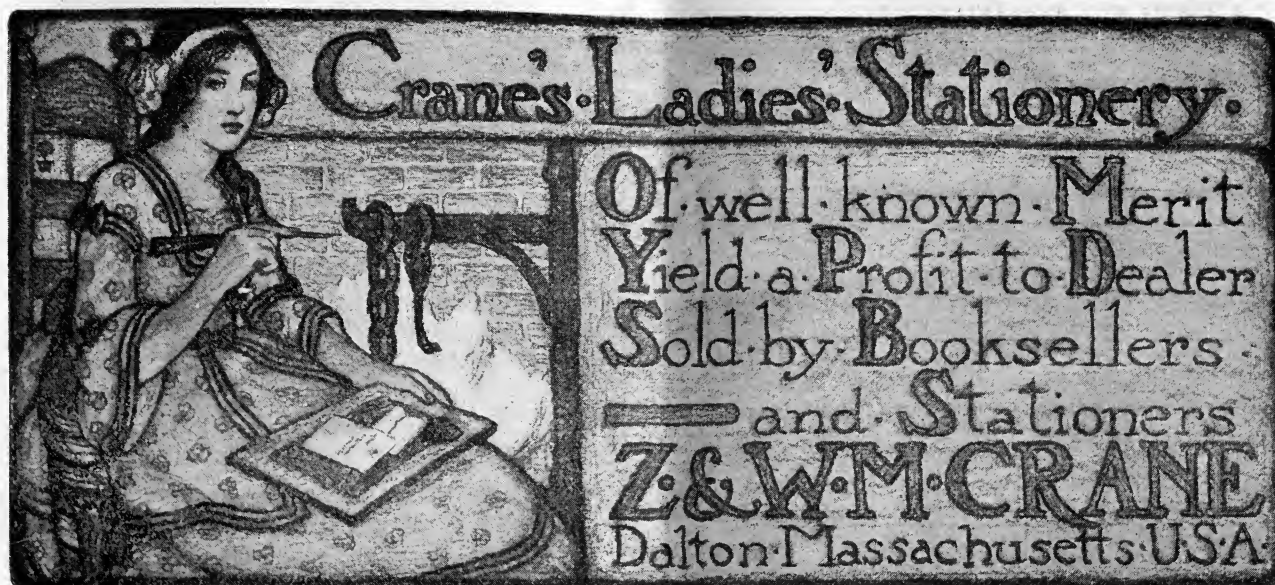 Crane's·Ladies'·Stationery·
Of·well·known·Merit
Yield·a·Profit·to·Dealer
Sold·by·Booksellers·
and·Stationers
Z·&·W·M·CRANE
Dalton·Massachusetts·U·S·A·